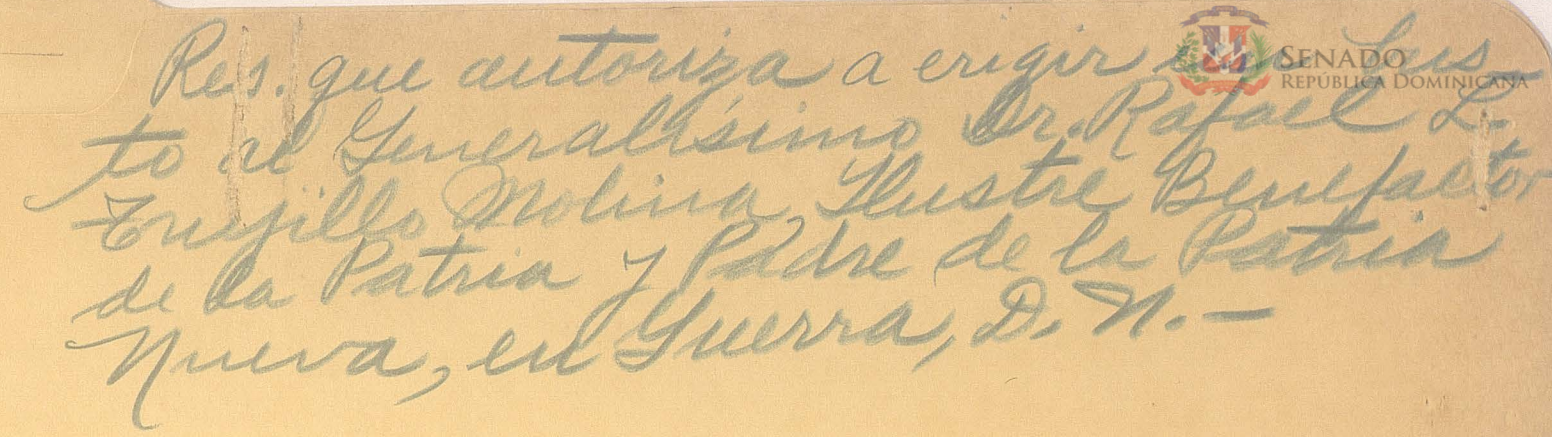 Res. que autoriza a erigir bus-
to al Generalísimo Dr. Rafael L.
Trujillo Molina, Ilustre Benefactor
de la Patria y Padre de la Patria
Nueva, en Guerra, D. N.-
SENADO
REPÚBLICA DOMINICANA